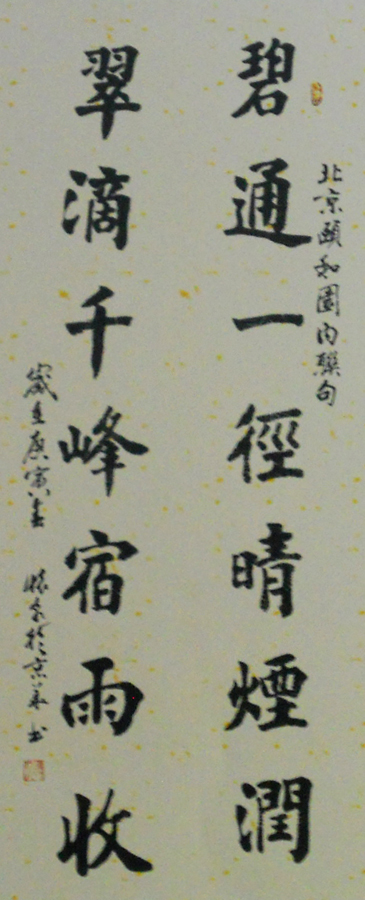 北京頤和園内聯句
碧通一徑晴煙潤
翠滴千峰宿雨收
歲在庚寅春 於京 書